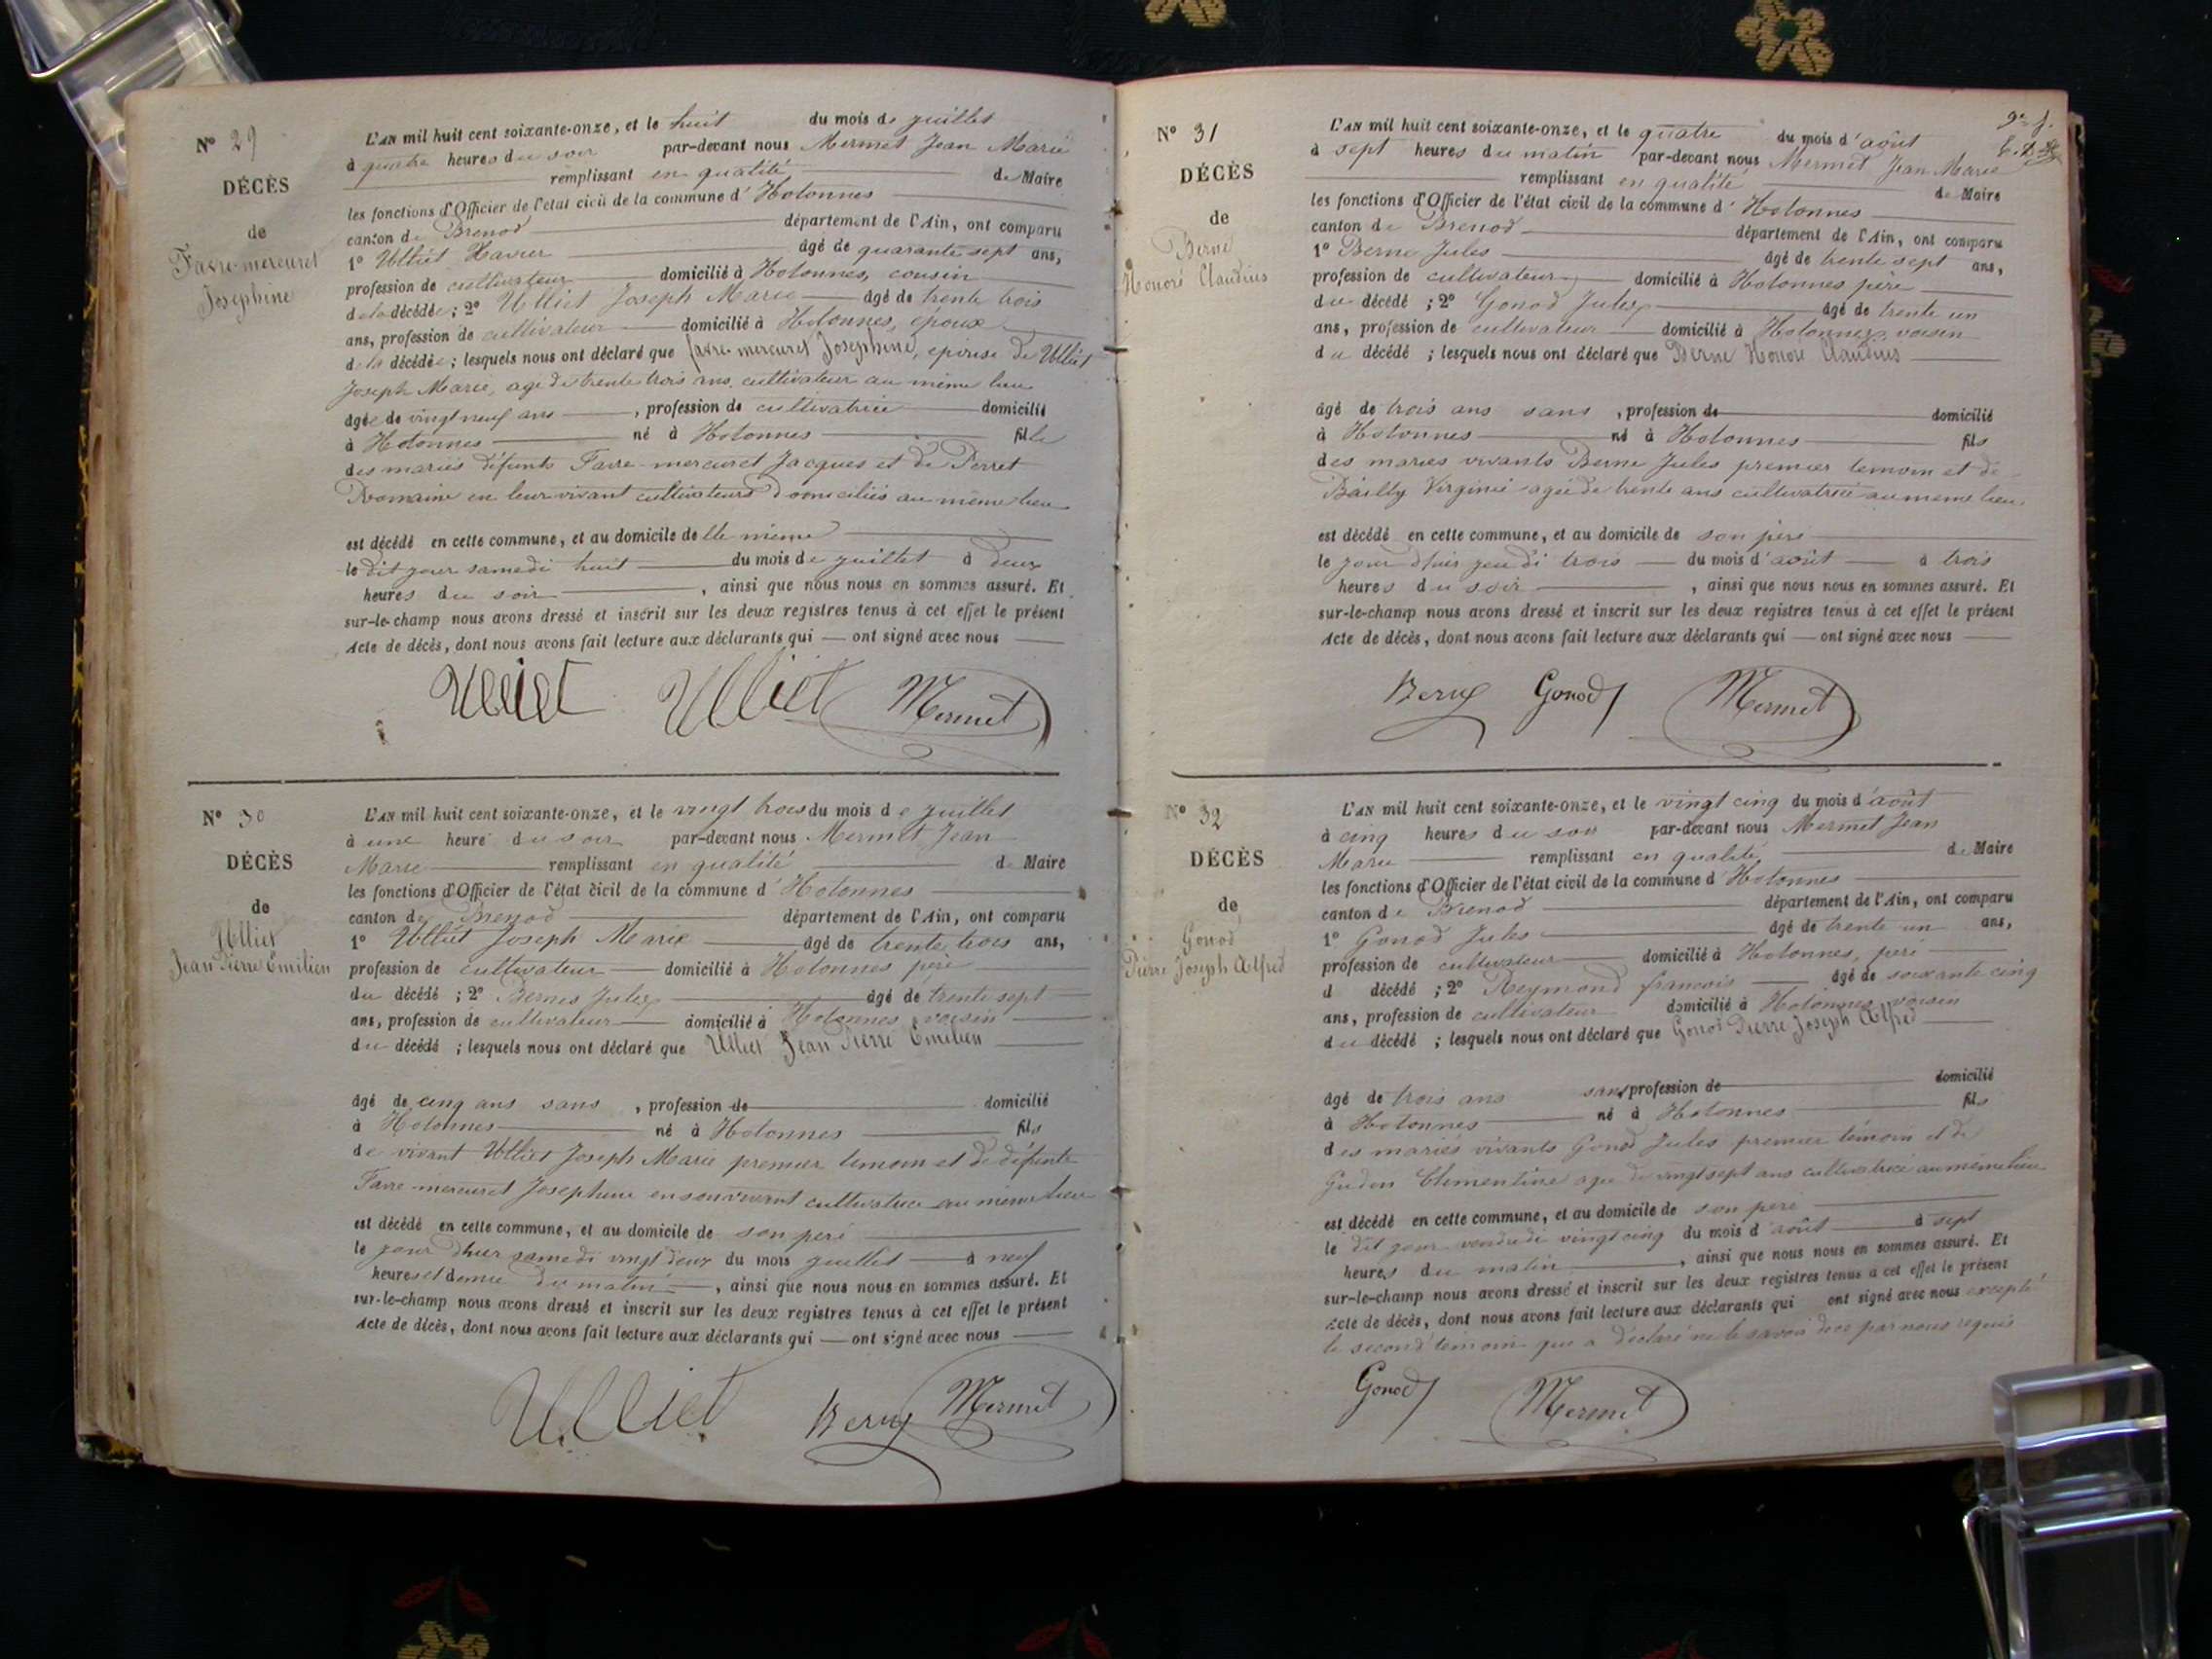 N° 29
DÉCÈS
de
Favre-mercuret
Josephine
L'AN mil huit cent soixante-onze, et le huit du mois de juillet
à quatre heures du soir par-devant nous Mermet Jean Marie
remplissant en qualité de Maire
les fonctions d'Officier de l'état civil de la commune d'Hotonnes
canton de Brenod département de l'Ain, ont comparu
1° Ulliet Xavier âgé de quarante sept ans,
profession de cultivateur domicilié à Hotonnes, cousin
de la décédée ; 2° Ulliet Joseph Marie âgé de trente trois
ans, profession de cultivateur domicilié à Hotonnes, époux
de la décédée ; lesquels nous ont déclaré que favre-mercuret Josephine, épouse de Ulliet
Joseph Marie, agé de trente trois ans, cultivateur au même lieu
âgée de vingt neuf ans, profession de cultivatrice domicilié
à Hotonnes né à Hotonnes fille
des mariés défunts Favre-mercuret Jacques et de Perret
Romaine en leur vivant cultivateurs domiciliés au même lieu
est décédé en cette commune, et au domicile de lle même
le dit jour samedi huit du mois de juillet à deux
heures du soir, ainsi que nous nous en sommes assuré. Et
sur-le-champ nous avons dressé et inscrit sur les deux registres tenus à cet effet le présent
Acte de décès, dont nous avons fait lecture aux déclarants qui — ont signé avec nous
Ulliet Ulliet Mermet
N° 30
DÉCÈS
de
Ulliet
Jean Pierre Emilien
L'AN mil huit cent soixante-onze, et le vingt trois du mois de juillet
à une heure du soir par-devant nous Mermet Jean
Marie remplissant en qualité de Maire
les fonctions d'Officier de l'état civil de la commune d'Hotonnes
canton de Brenod département de l'Ain, ont comparu
1° Ulliet Joseph Marie âgé de trente trois ans,
profession de cultivateur domicilié à Hotonnes père
du décédé ; 2° Bernes Jules âgé de trente sept
ans, profession de cultivateur domicilié à Hotonnes voisin
du décédé ; lesquels nous ont déclaré que Ulliet Jean Pierre Emilien
âgé de cinq ans sans, profession de domicilié
à Hotonnes né à Hotonnes fils
de vivant Ulliet Joseph Marie premier temoin et de défunte
Favre-mercuret Josephine en son vivant cultivatrice au même lieu
est décédé en cette commune, et au domicile de son père
le jour d'hier samedi vingt deux du mois juillet à neuf
heures et demie du matin, ainsi que nous nous en sommes assuré. Et
sur-le-champ nous avons dressé et inscrit sur les deux registres tenus à cet effet le présent
Acte de décès, dont nous avons fait lecture aux déclarants qui — ont signé avec nous
Ulliet Berne Mermet
N° 31
DÉCÈS
de
Berne
Honoré Claudius
L'AN mil huit cent soixante-onze, et le quatre du mois d'août
à sept heures du matin par-devant nous Mermet Jean Marie
remplissant en qualité de Maire
les fonctions d'Officier de l'état civil de la commune d'Hotonnes
canton de Brenod département de l'Ain, ont comparu
1° Berne Jules âgé de trente sept ans,
profession de cultivateur domicilié à Hotonnes père
du décédé ; 2° Gonod Jules âgé de trente un
ans, profession de cultivateur domicilié à Hotonnes, voisin
du décédé ; lesquels nous ont déclaré que Berne Honoré Claudius
âgé de trois ans sans, profession de domicilié
à Hotonnes né à Hotonnes fils
des mariés vivants Berne Jules premier temoin et de
Bailly Virginie agée de trente ans cultivatrice au même lieu
est décédé en cette commune, et au domicile de son père
le jour d'hier jeudi trois du mois d'août à trois
heures du soir, ainsi que nous nous en sommes assuré. Et
sur-le-champ nous avons dressé et inscrit sur les deux registres tenus à cet effet le présent
Acte de décès, dont nous avons fait lecture aux déclarants qui — ont signé avec nous
Berne Gonod Mermet
N° 32
DÉCÈS
de
Gonod
Pierre Joseph Alfred
L'AN mil huit cent soixante-onze, et le vingt cinq du mois d'août
à cinq heures du soir par-devant nous Mermet Jean
Marie remplissant en qualité de Maire
les fonctions d'Officier de l'état civil de la commune d'Hotonnes
canton de Brenod département de l'Ain, ont comparu
1° Gonod Jules âgé de trente un ans,
profession de cultivateur domicilié à Hotonnes, père
d décédé ; 2° Reymond françois âgé de soixante cinq
ans, profession de cultivateur domicilié à Hotonnes voisin
du décédé ; lesquels nous ont déclaré que Gonod Pierre Joseph Alfred
âgé de trois ans sans profession de domicilié
à Hotonnes né à Hotonnes fils
des mariés vivants Gonod Jules premier témoin et de
Clémentine agée de vingt sept ans cultivatrice au même lieu
est décédé en cette commune, et au domicile de son père
le dit jour vendredi vingt cinq du mois d'août à sept
heures du matin, ainsi que nous nous en sommes assuré. Et
sur-le-champ nous avons dressé et inscrit sur les deux registres tenus à cet effet le présent
Acte de décès, dont nous avons fait lecture aux déclarants qui ont signé avec nous excepté
le second témoin qui a déclaré ne le savoir de ce par nous requis
Gonod Mermet